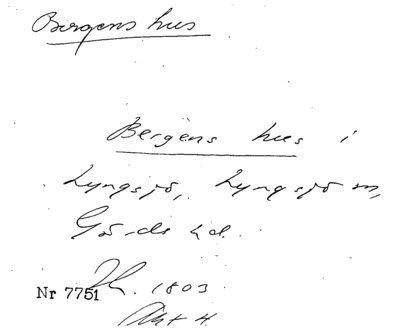 Bergens hus
Bergens hus i
Lyngsjö, Lyngsjö sn,
Gärds hd.
Nr 7751 Jh. 1803
Akt 4.